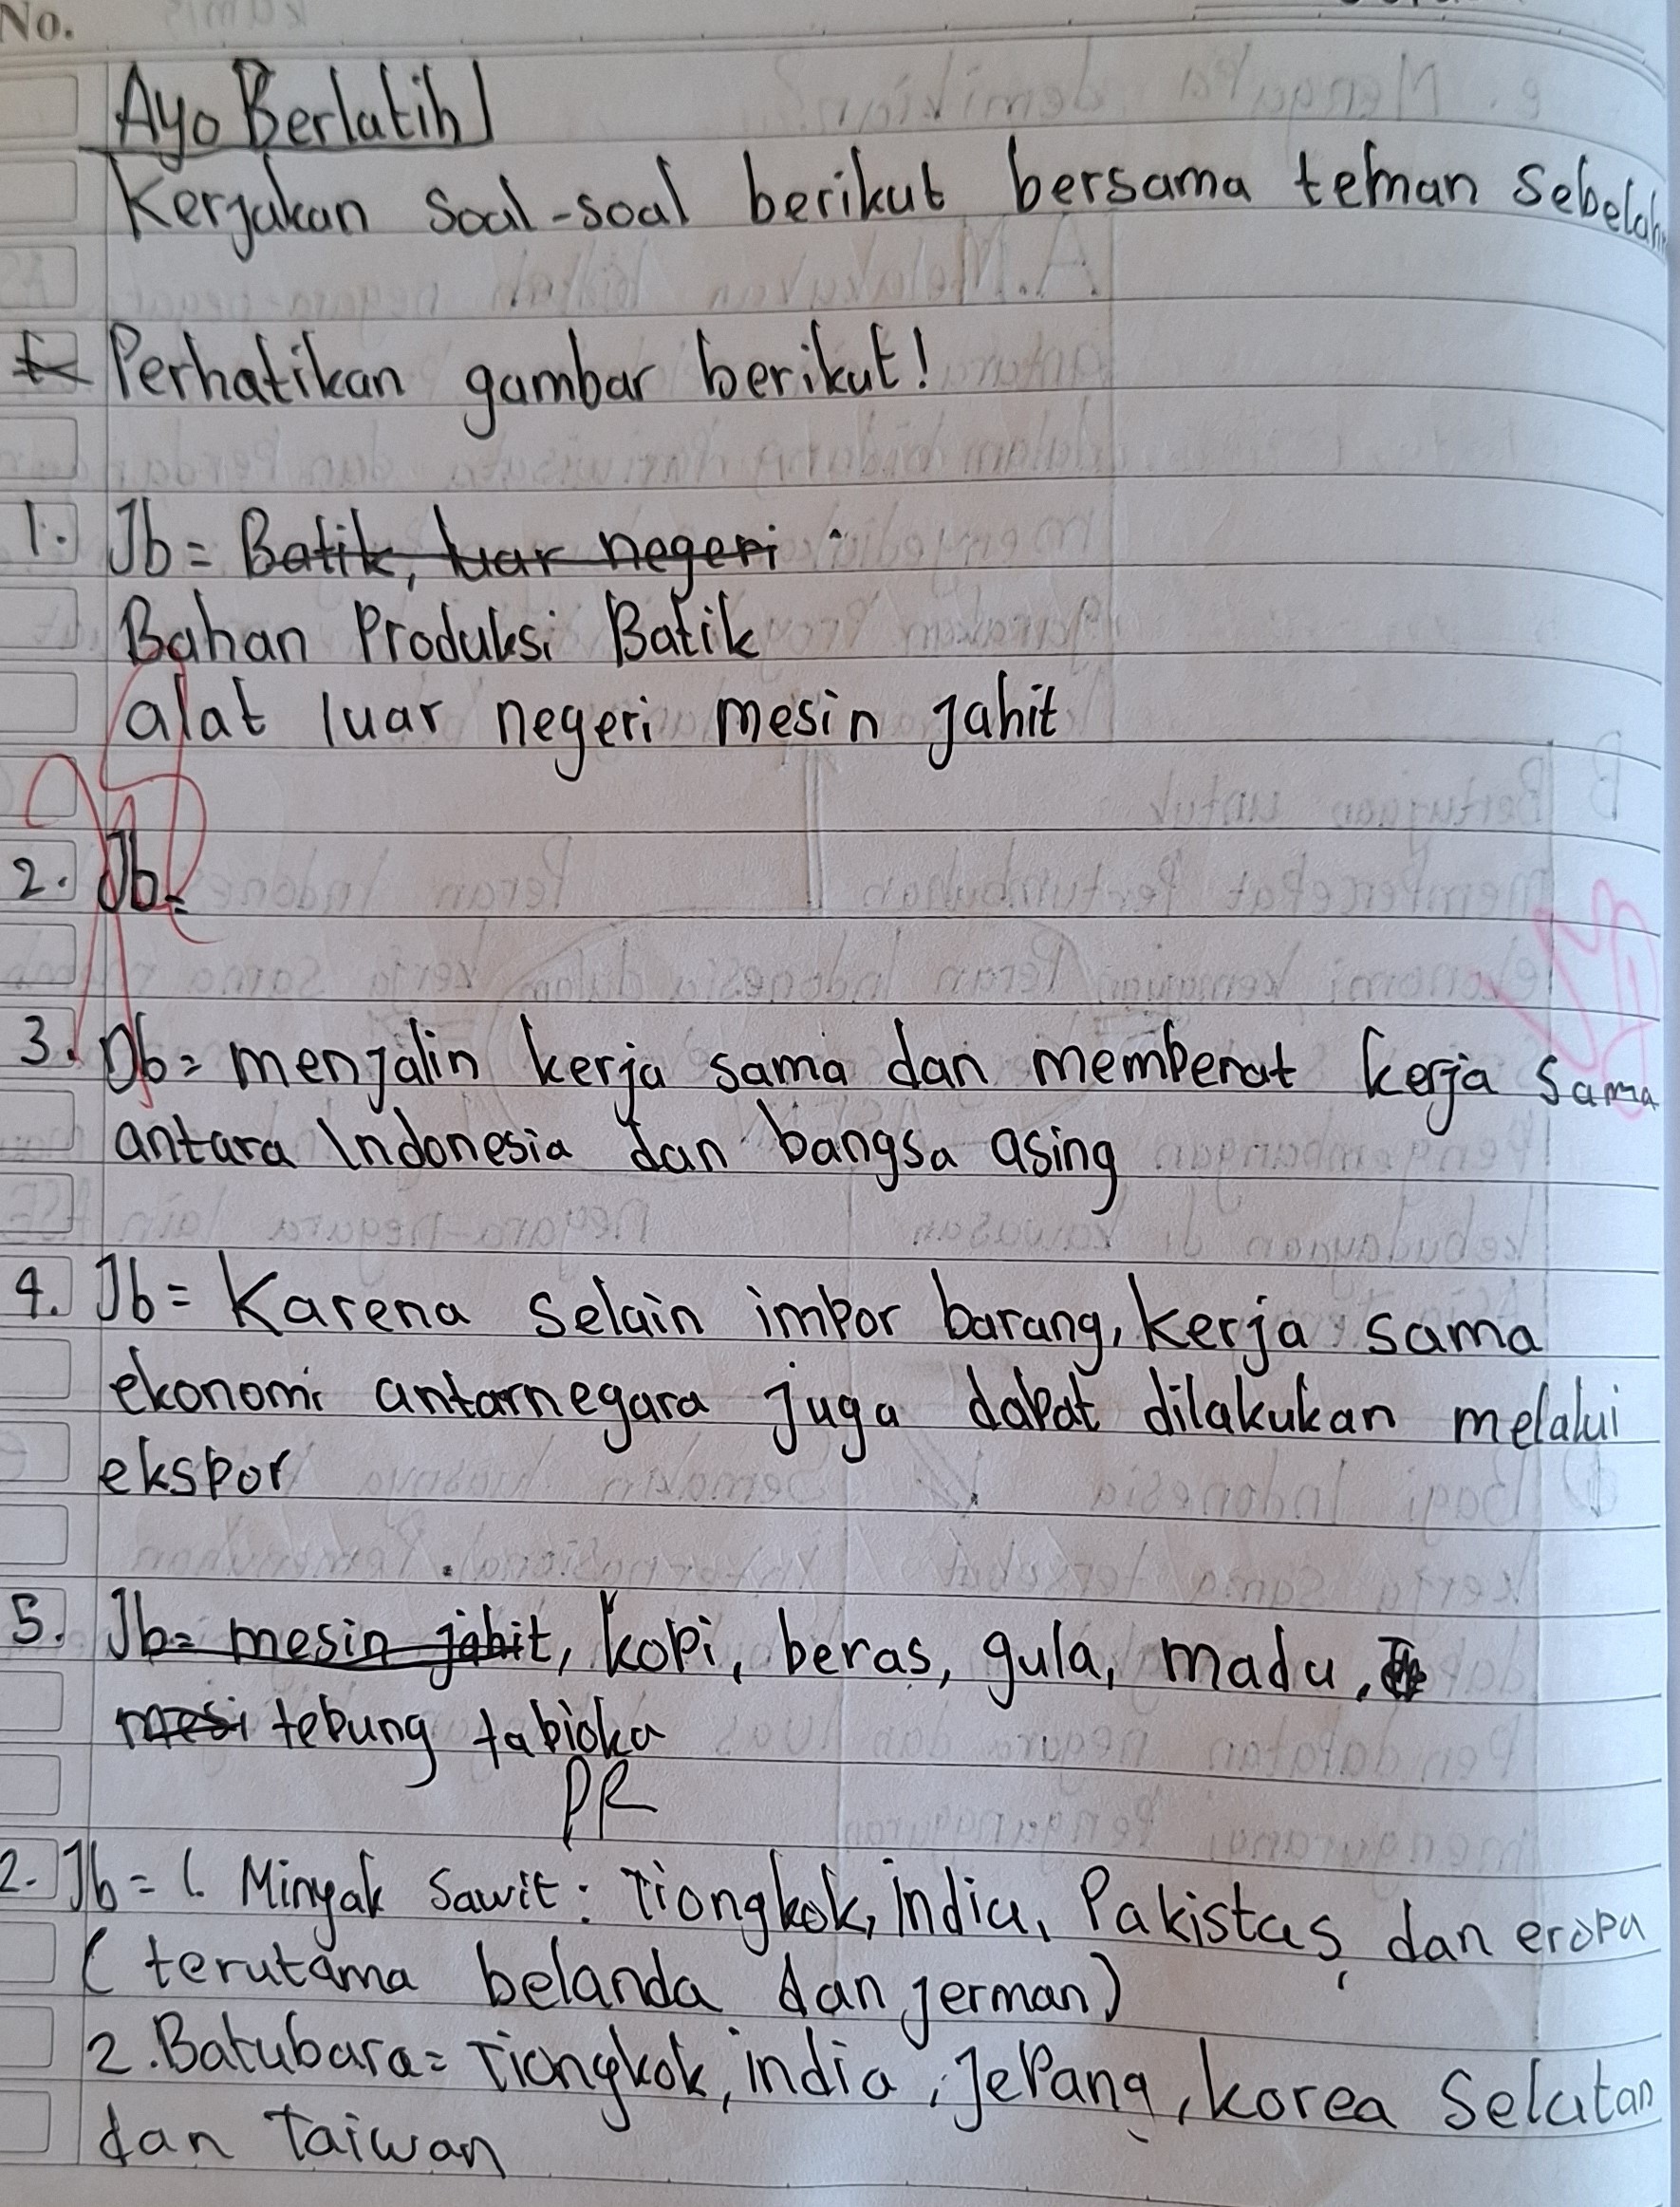 No.
Ayo Berlatih
Kerjakan soal-soal berikut bersama teman sebelah
Perhatikan gambar berikut!
1. Jb = Batik, luar negeri
Bahan Produksi Batik
alat luar negeri mesin jahit
2. Jb=
3. Jb= menjalin kerja sama dan memperat kerja sama
antara Indonesia dan bangsa asing
4. Jb= Karena selain impor barang, kerja sama
ekonomi antarnegara juga dapat dilakukan melalui
ekspor
5. Jb= mesin jahit, kopi, beras, gula, madu,
mesi tepung tabioka
PR
2. Jb = 1. Minyak Sawit: Tiongkok, india, Pakistas, dan eropa
(terutama belanda dan jerman)
2. Batubara= Tiongkok, india, Jepang, korea Selatan
dan Taiwan